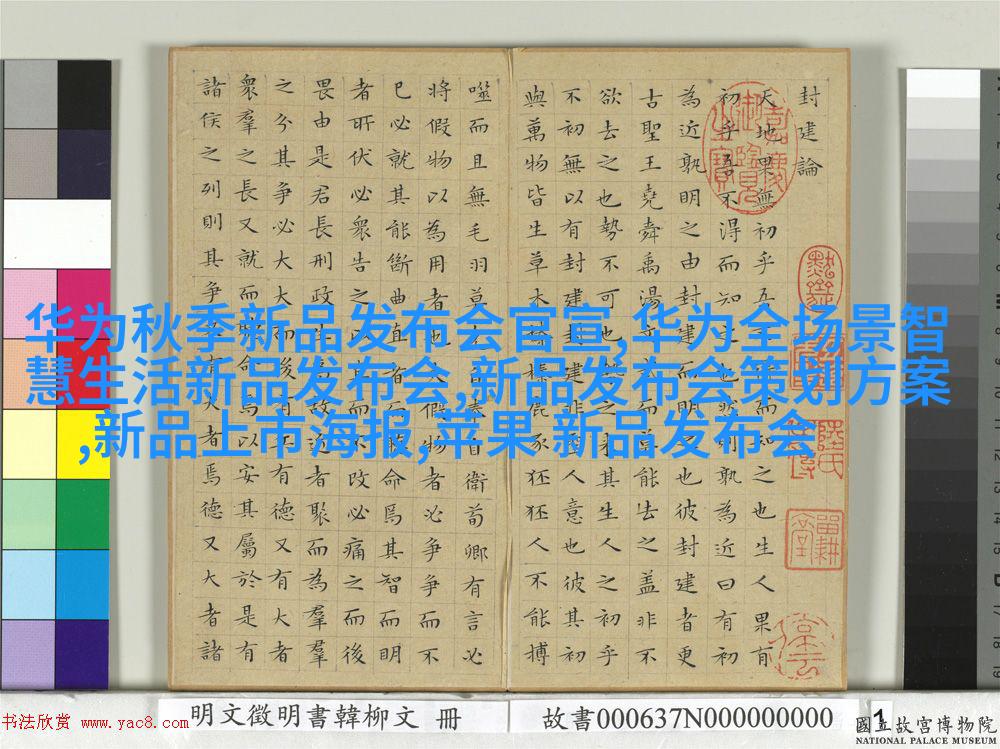 封建論
天地果無初乎吾不得而知之也生人果有
初乎吾不得而知之也然則孰為近曰有初
為近孰明之由封建而明之也彼封建者更
古聖王堯舜禹湯文武而莫能去之蓋非不
欲去之也勢不可也勢之來其生人之初乎
不初無以有封建封建非聖人意也彼其初
與萬物皆生草木榛榛鹿豕狉狉人不能搏
噬而且無毛羽莫克自奉自衛荀卿有言必
將假物以為用者也夫假物者必爭爭而不
已必就其能斷曲直者而聽命焉其智而明
者所伏必衆告之以直而不改必痛之而後
畏由是君長刑政生焉故近者聚而為羣
之分其爭必大大而後有兵有德又有大者
衆羣之長又就而聽命焉以安其屬於是有
諸侯之列則其爭又有大者焉德又大者諸
华为秋季新品发布会官宣,华为全场景智
慧生活新品发布会,新品发布会策划方案
,新品上市海报,苹果 新品发布会
明文徵明書韓柳文 冊
故書000637N000000000
1
國立故宮博物院
NATIONAL PALACE MUSEUM
书法欣赏 www.yac8.com